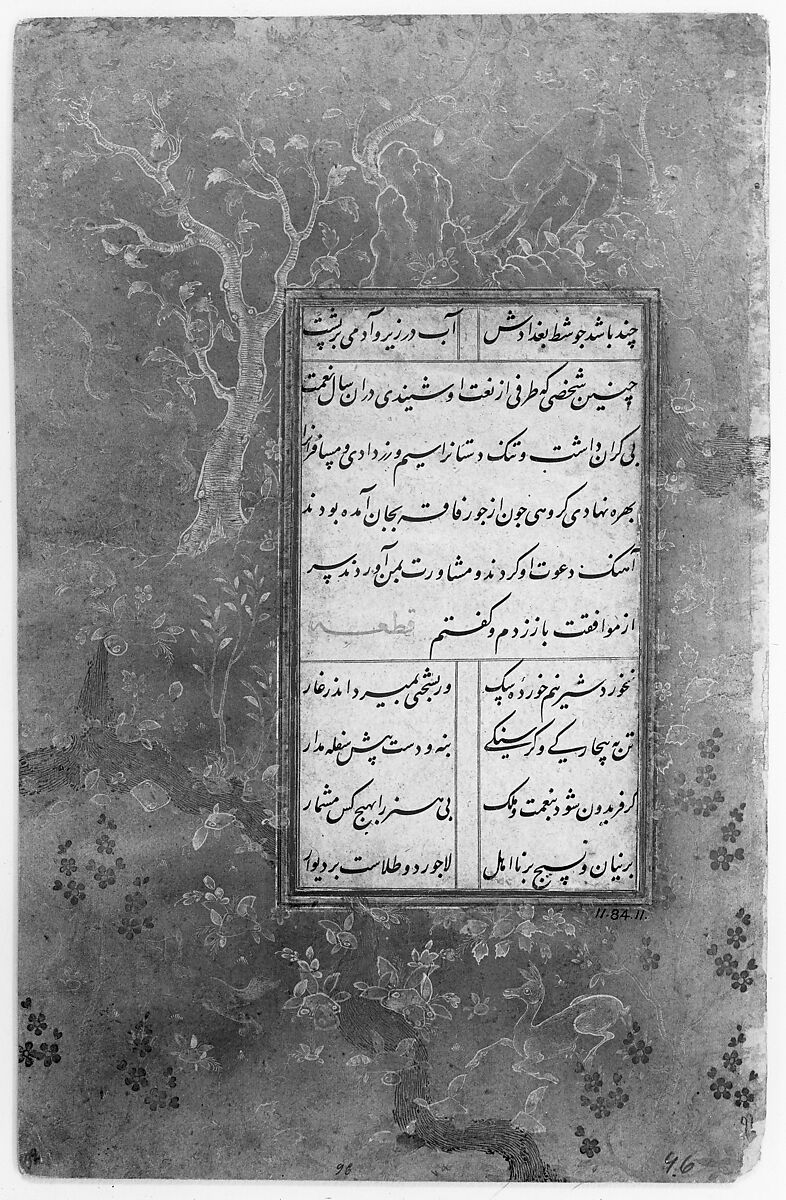 چند باشد جو شط بغدادش آب در زیر و آدمی بر پشت
چنین شخصی که طرفی از نعت او شنیدی دران سال نعمت
بی کران داشت و تنک دستانرا سیم و زر دادی و مسافرانرا
بهره نهادی کروهی جون از جور فاقه بجان آمده بودند
آهنک دعوت او کردند و مشاورت بمن آوردند سر
از موافقت باز زدم و کفتم قطعه
نخورد شیر نیم خورده سک ور بسختی بمیرد اندر غار
تن به بیچارکی و کرسنکی بنه و دست پیش سفله مدار
کر فریدون شود بنعمت و ملک بی هنر را بهیچ کس مشمار
برنیان و نسیج بر نااهل لاجورد و طلاست بر دیوار
11.84.11.
96
46